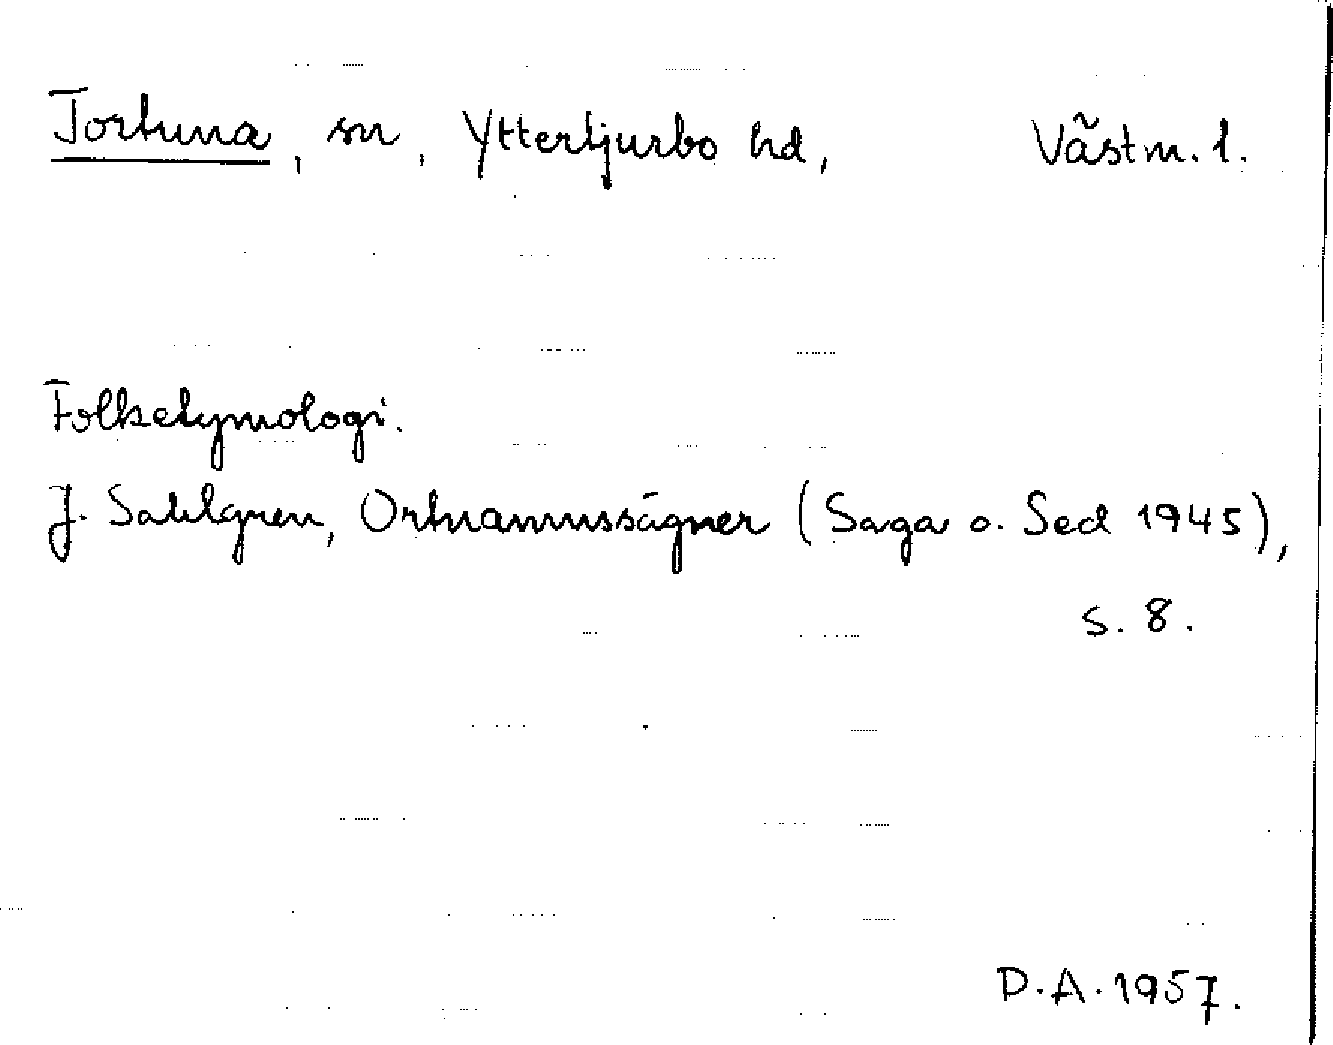 Tortuna, sn, Yttertjurbo hd, Västm. l.
Folketymologi.
J. Sahlgren, Ortnamnssägner (Saga o. Sed 1945),
s. 8.
D.A. 1957.